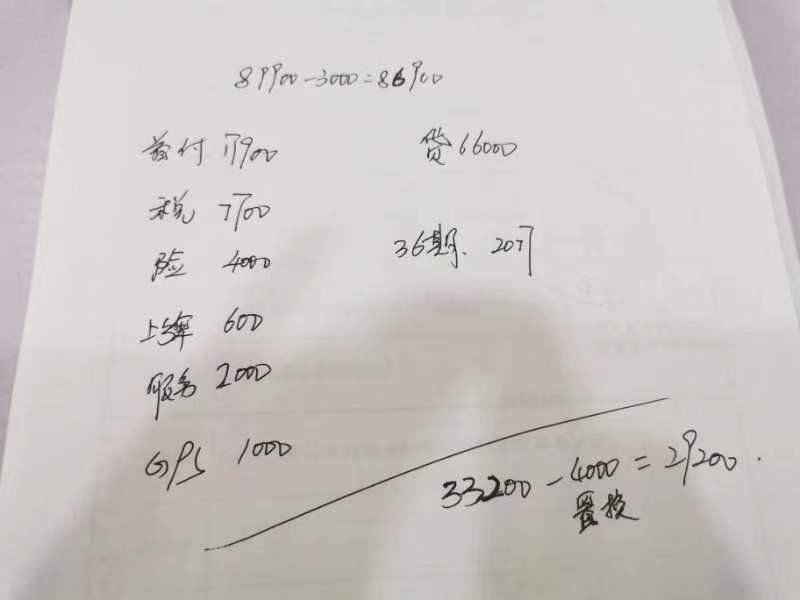 89900-3000=86900
首付 17900 贷 66000
税 7700
险 4000 36期. 2017
上牌 600
服务 2000
GPS 1000
33200-4000=29200.
置换